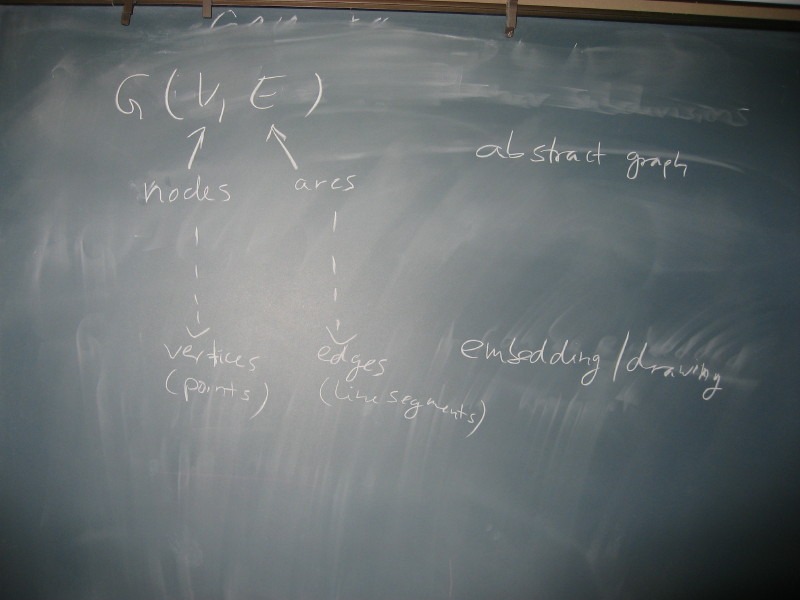 G(V, E)
abstract graph
nodes arcs
vertices edges embedding/drawing
(points) (line segments)